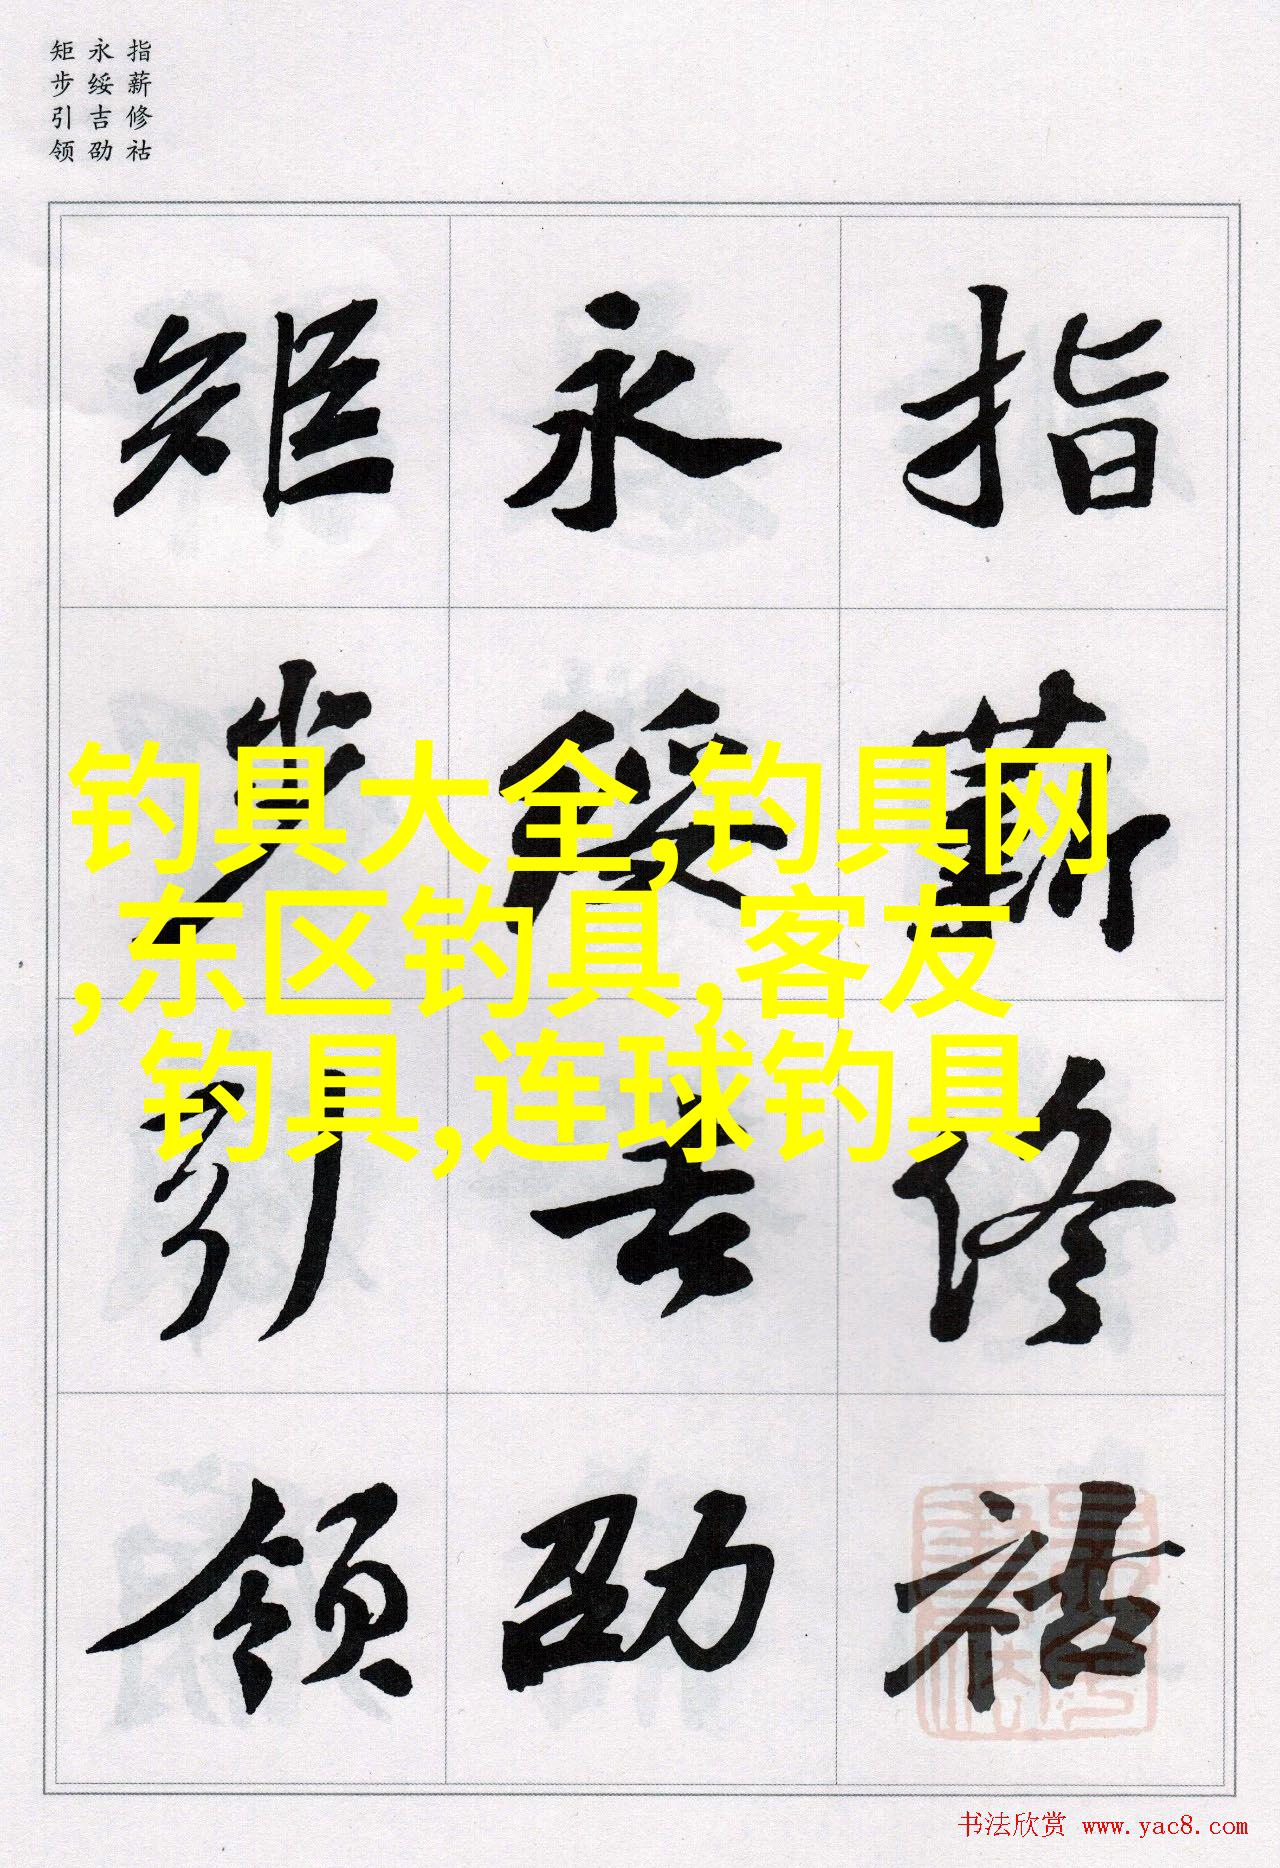 指薪修祜
永绥吉劭
矩步引领
指薪修祜
永绥吉劭
矩步引领
钓具大全,钓具网
,东区钓具,客友
钓具,连球钓具
书法欣赏 www.yac8.com